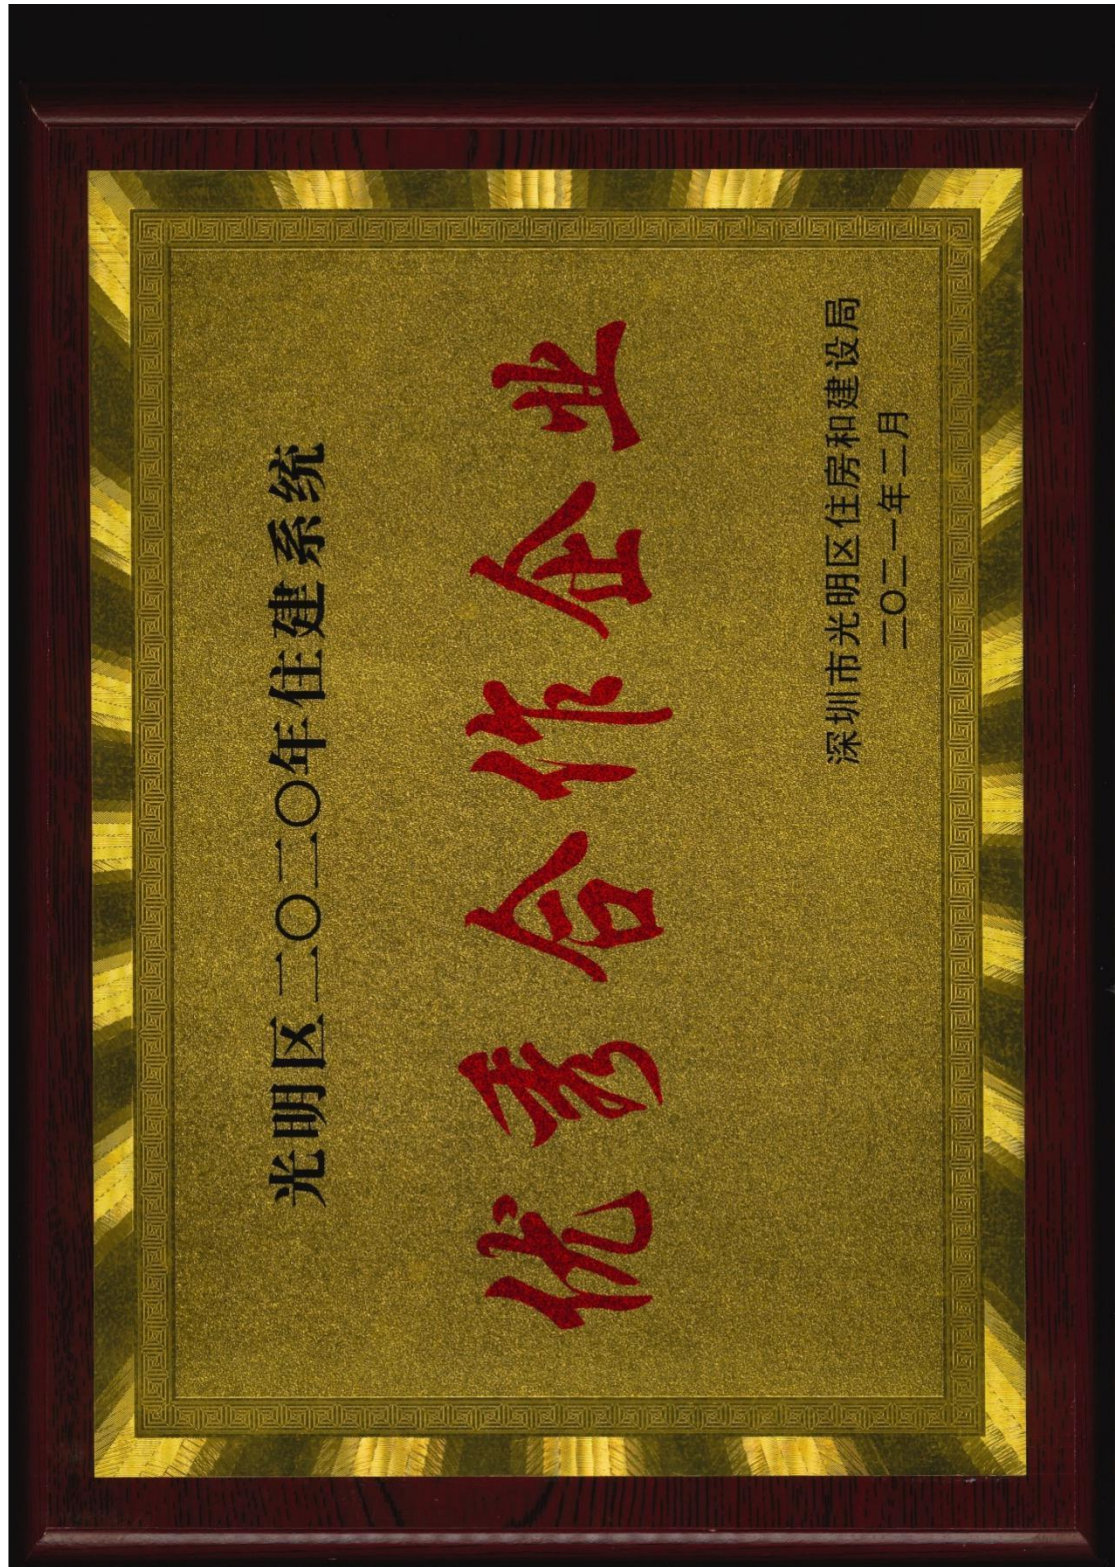 光明区二〇二〇年住建系统
优秀合作企业
深圳市光明区住房和建设局
二〇二一年二月